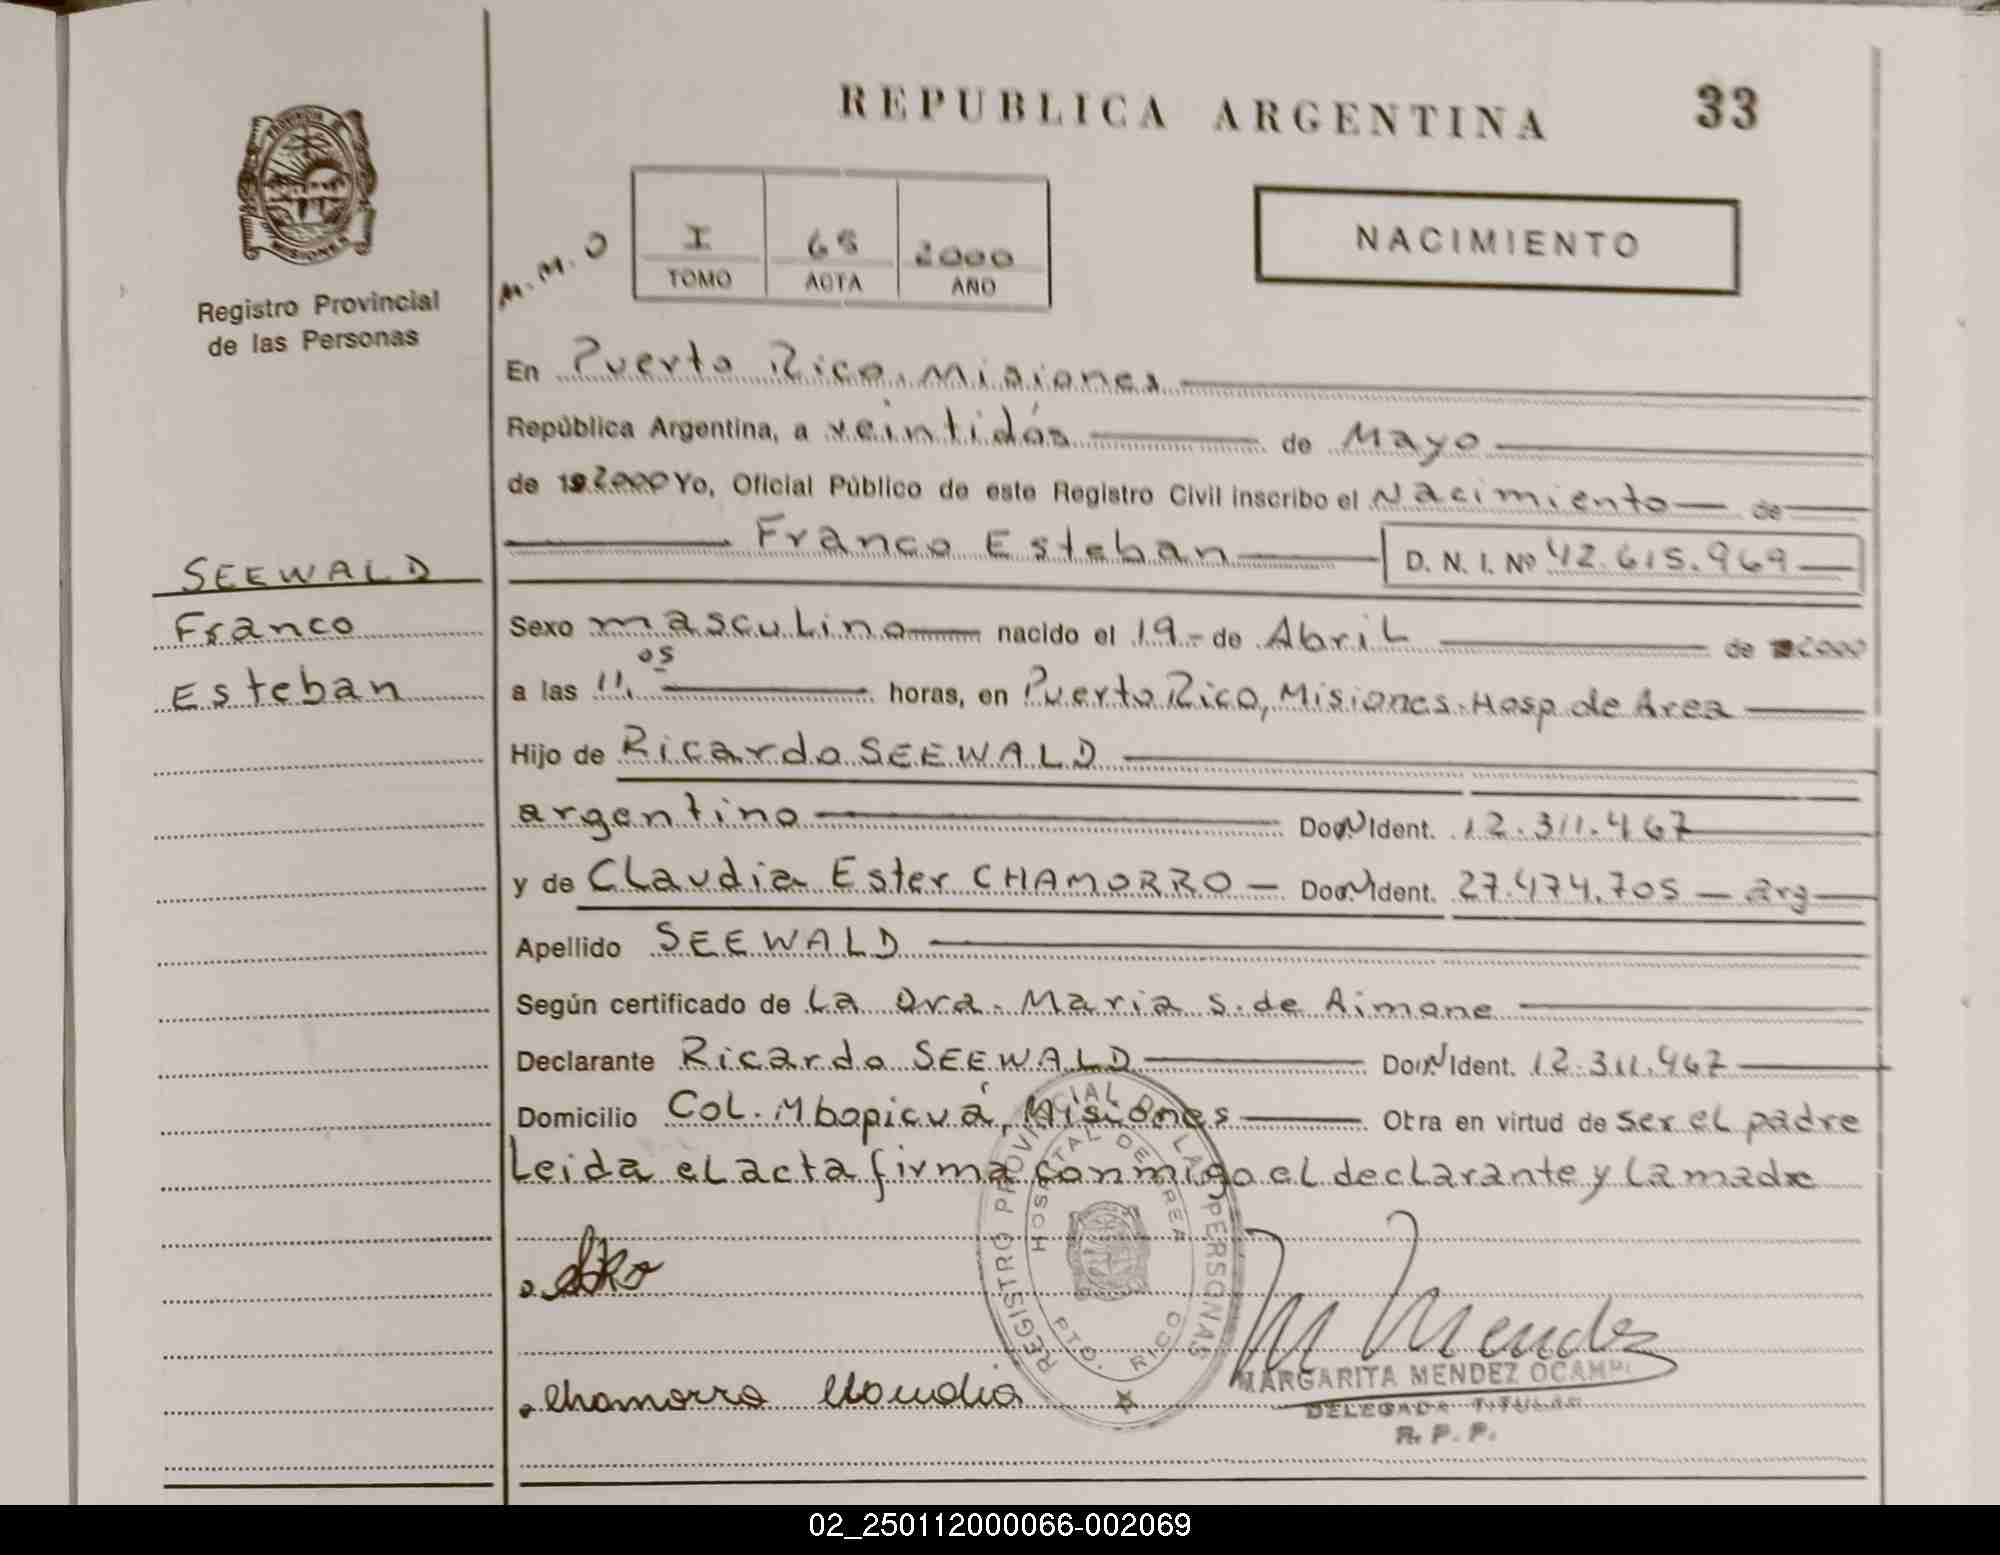 REPUBLICA ARGENTINA 33
PROVINCIA DE MISIONES
Registro Provincial
de las Personas
M. M. O
I 65 2000
TOMO ACTA AÑO
NACIMIENTO
En Puerto Rico, Misiones
República Argentina, a veintidós de Mayo
de 192000 Yo, Oficial Público de este Registro Civil inscribo el Nacimiento de
Franco Esteban D. N. I. Nº 42.615.969
SEEWALD
Franco
Esteban
Sexo masculino nacido el 19.- de Abril de 2000
a las 11,05 horas, en Puerto Rico, Misiones. Hosp de Area
Hijo de Ricardo SEEWALD
argentino Ident. 12.311.467
y de Claudia Ester CHAMORRO Ident. 27.474.705 arg
Apellido SEEWALD
Según certificado de La Dra. Maria S. de Aimone
Declarante Ricardo SEEWALD Ident. 12.311.467
Domicilio Col. Mbopicuá, Misiones Otra en virtud de ser el padre
Leida el acta firma conmigo el declarante y la madre
REGISTRO PROVINCIAL DE LAS PERSONAS
HOSPITAL DE AREA
PTO. RICO
M Mendez
MARGARITA MENDEZ OCAMPO
DELEGADA TITULAR
R. P. P.
Chamorro Claudia
02_250112000066-002069